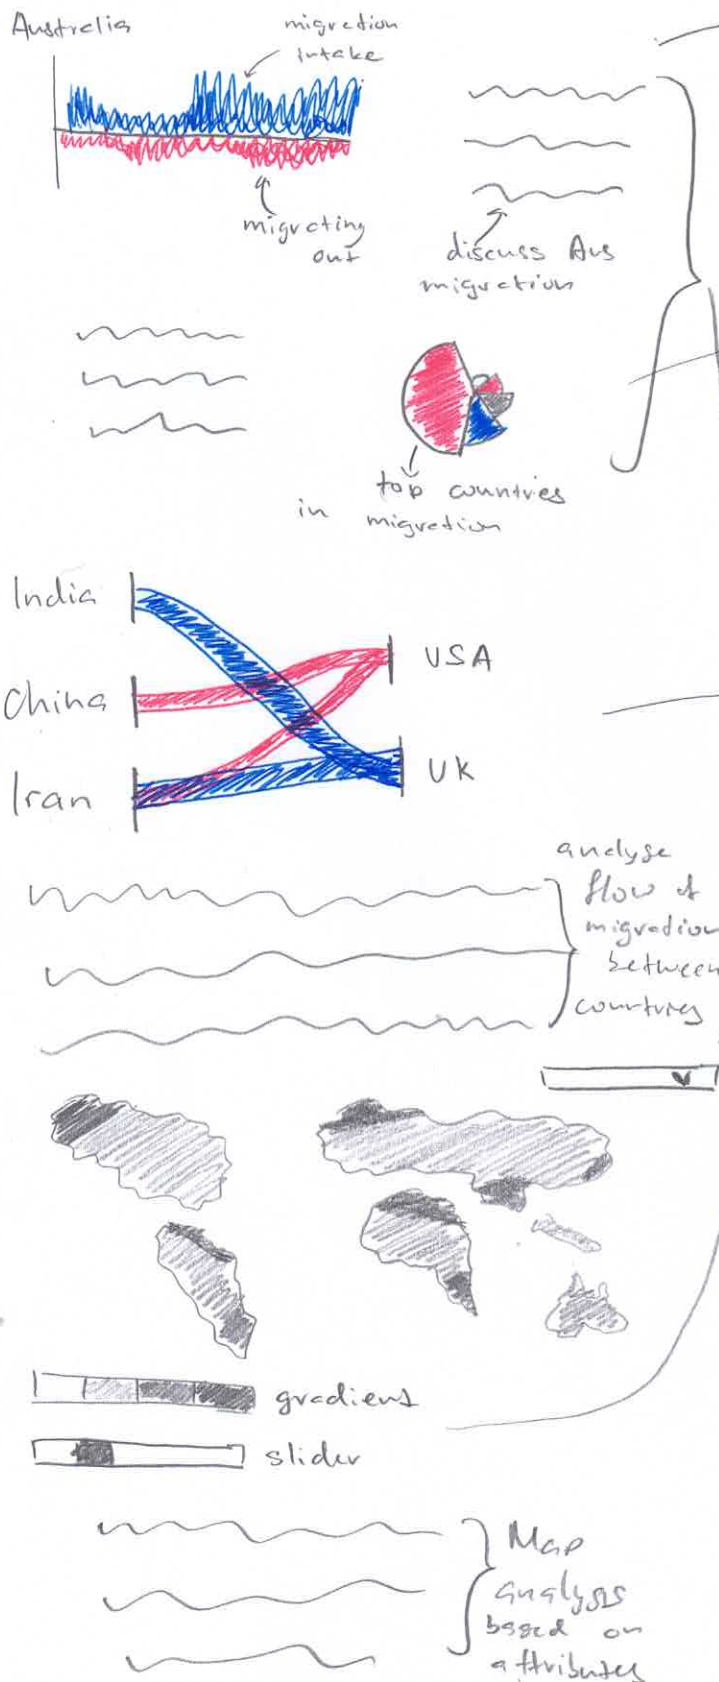 Australia
migration
intake
migrating
out
discuss Aus
migration
top countries
in migration
India
China
Iran
USA
UK
analyse
flow of
migration
between
countries
gradient
slider
Map
analysis
based on
attributes